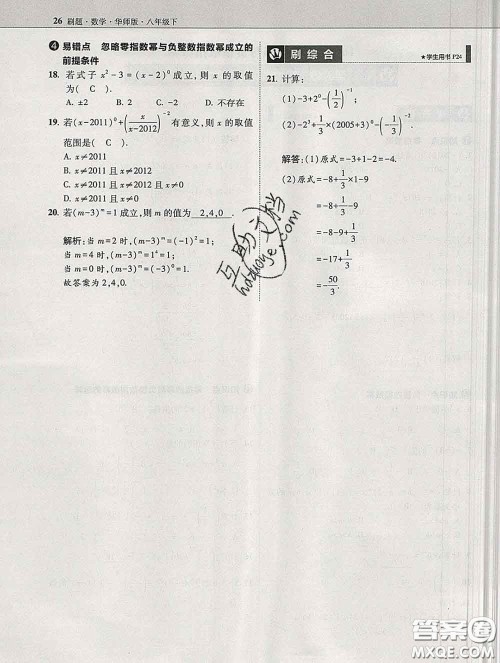 26 刷题·数学·华师版·八年级下
4 易错点 忽略零指数幂与负整数指数幂成立的
前提条件
18. 若式子 x²-3=(x-2)⁰ 成立,则 x 的取值
为( C ).
A. ±2 B. 2 C. -2 D. 不存在
19. 若(x-2011)⁰+(x/(x-2012))⁻² 有意义,则 x 的取值
范围是( C ).
A. x≠2011
B. x≠2011 且 x≠2012
C. x≠2011 且 x≠2012 且 x≠0
D. x≠2011 且 x≠0
20. 若(m-3)ᵐ=1成立,则 m 的值为 2,4,0 .
解析:当 m=2 时,(m-3)ᵐ=(-1)²=1.
当 m=4 时,(m-3)ᵐ=1⁴=1.
当 m=0 时,(m-3)ᵐ=(-3)⁰=1.
故答案为 2,4,0.
刷综合
★学生用书 P24
21. 计算:
(1)-3+2⁰-(1/2)⁻¹;
(2)-2³+1/3×(2005+3)⁰-(-1/3)⁻².
解答:(1)原式=-3+1-2=-4.
(2)原式=-8+1/3×1-9
=-8+1/3-9
=-17+1/3
=-50/3.
互助文档
hdzuoye.com
答案圈
MXQE.COM